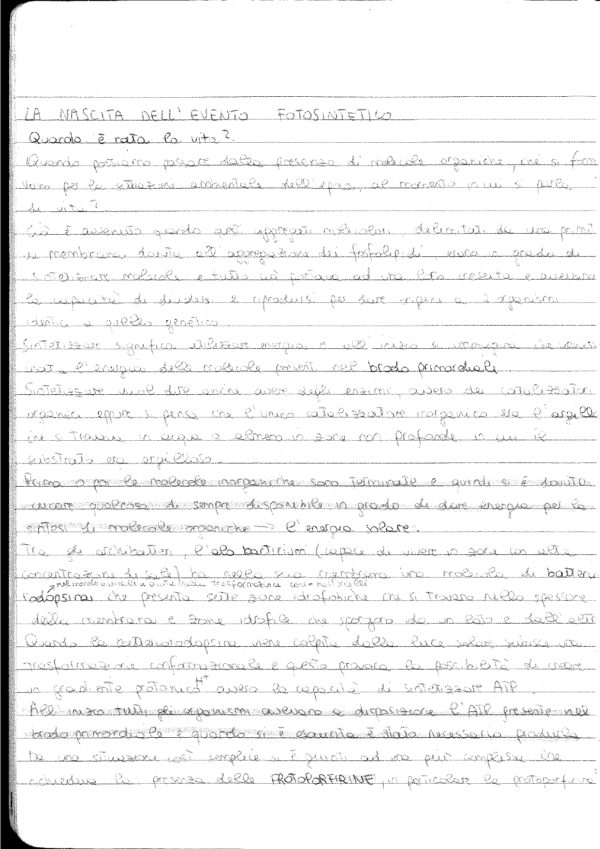 LA NASCITA DELL'EVENTO FOTOSINTETICO
Quando è nata la vita?
Quando possiamo passare dalla presenza di molecole organiche, che si for
vano per la situazione ambientale dell'epoca, al momento in cui si parla
di vita?
Ciò è avvenuto quando questi aggregati molecolari, delimitati da una primi
membrana dovuta all'aggregazione dei fosfolipidi, erano in grado di
sintetizzare molecole e tutto ciò portava ad una loro crescita e avevano
la capacità di dividersi e riprodursi per dare origine a 2 organismi
identici a quello genetico.
Sintetizzare significa utilizzare energia e all'inizio si immagina che venis
l'energia delle molecole presenti nel brodo primordiale.
Sintetizzare vuol dire anche avere degli enzimi, ovvero dei catalizzatori
organici eppure si pensa che l'unico catalizzatore inorganico era l'argilla
che si trovava in acqua o almeno in zone non profonde in cui il
substrato era argilloso.
Prima o poi le molecole inorganiche sono terminate e quindi si è dovuto
cercare qualcosa di sempre disponibile in grado di dare energia per la
sintesi di molecole organiche → l'energia solare.
Tra gli archibatteri, l'alo bacterium (capace di vivere in zone con alta
concentrazione di sale) ha nella sua membrana una molecola di batterio
rodopsina che presenta sette zone idrofobiche che si trovano nello spessore
della membrana e zone idrofile che sporgono da un lato e dall'altro
Quando la batteriorodopsina viene colpita dalla luce solare subisce una
trasformazione conformazionale e questo provoca la possibilità di creare
un gradiente protonico H+ ovvero la capacità di sintetizzare ATP.
All'inizio tutti gli organismi avevano a disposizione l'ATP presente nel
brodo primordiale e quando si è esaurita è stato necessario produrla
Da una situazione così semplice si è giunti ad una più complessa che
richiedeva la presenza delle PROTOPORFIRINE, in particolare la protoporfirina